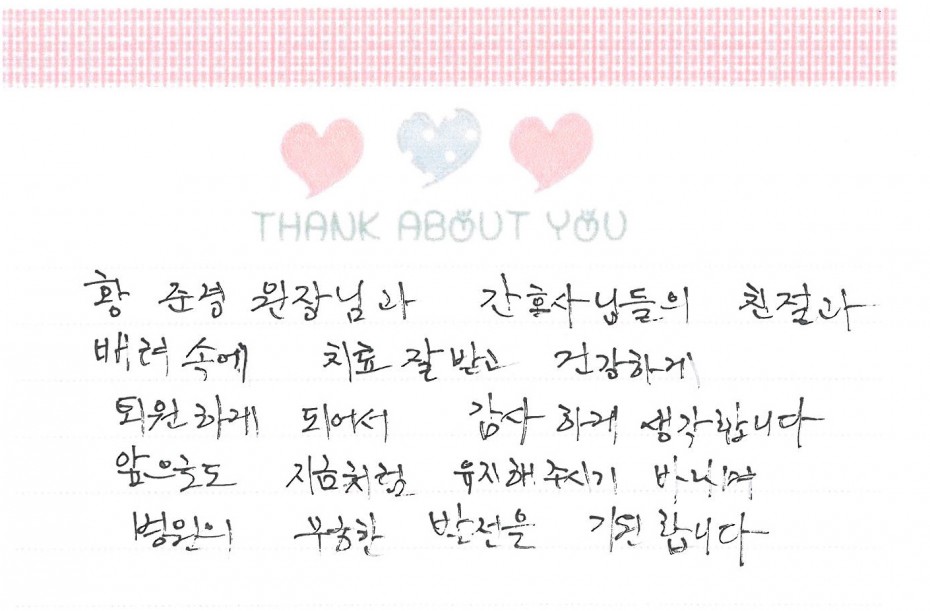 THANK ABOUT YOU
황 준경 원장님과 간호사님들의 친절과
배려 속에 치료 잘 받고 건강하게
퇴원하게 되어서 감사하게 생각합니다
앞으로도 지금처럼 유지해주시기 바라며
병원의 무궁한 발전을 기원합니다